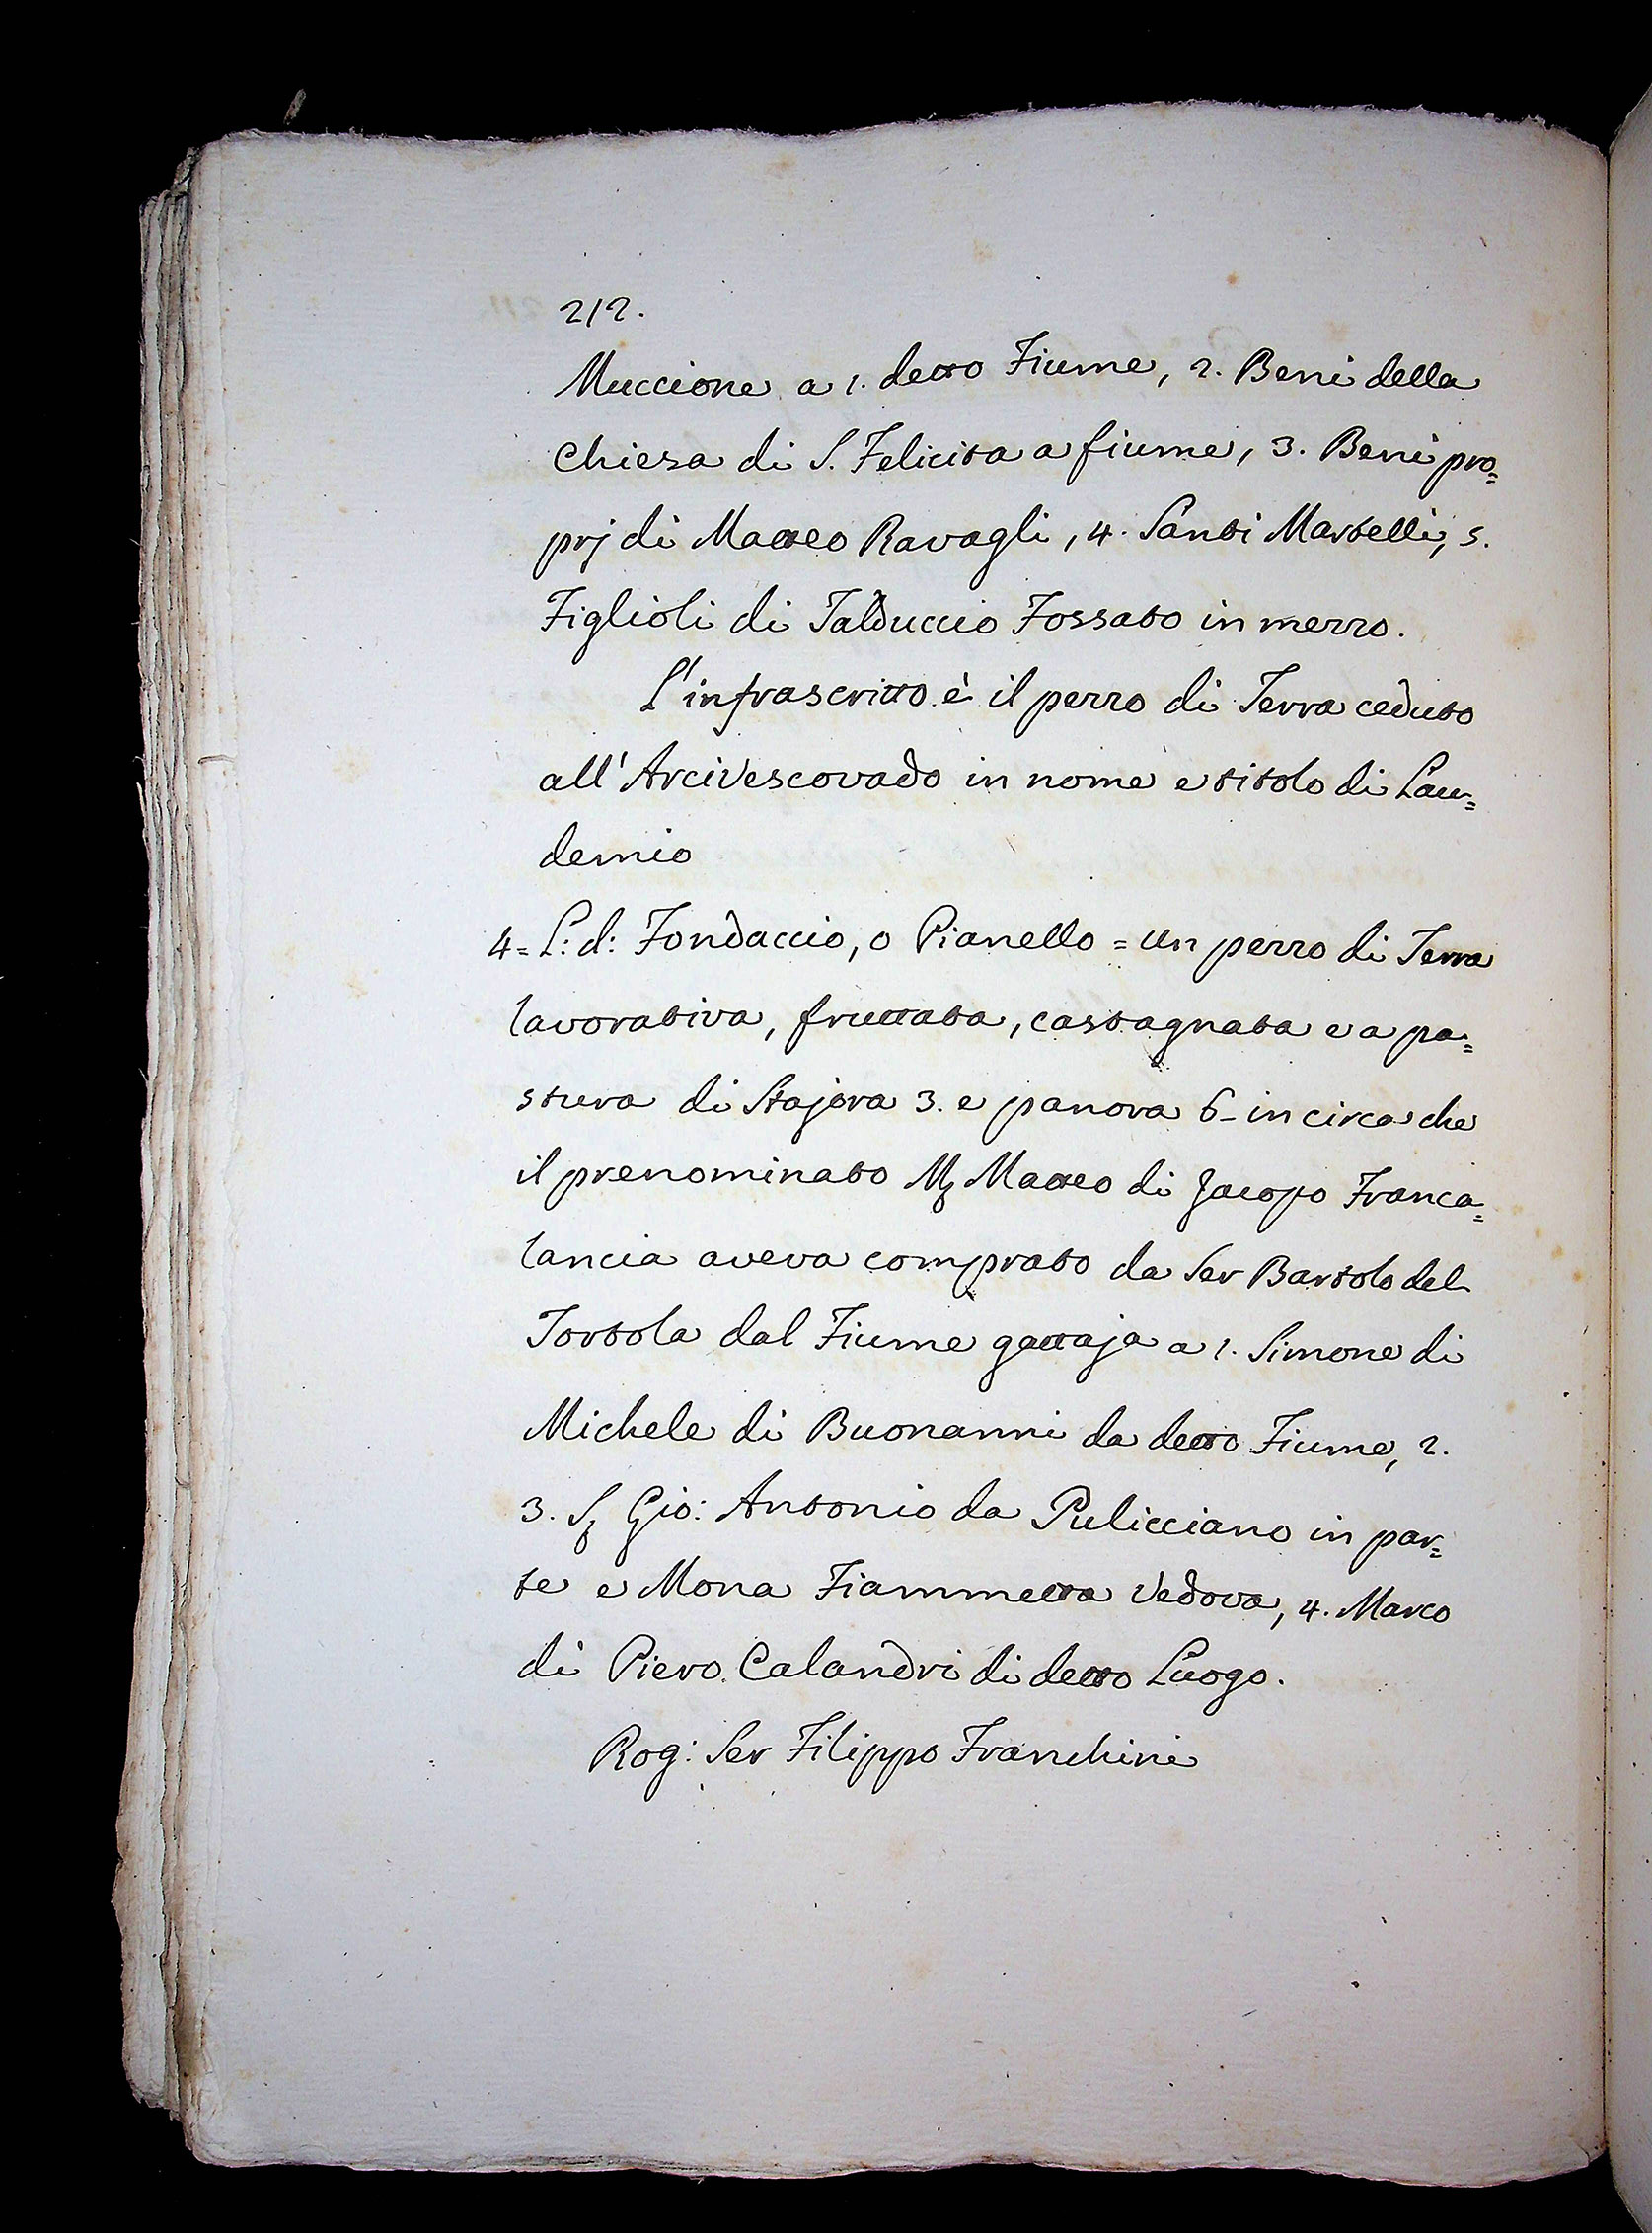 212.
Muccione a 1. detto Fiume, 2. Beni della
Chiesa di S. Felicita a fiume, 3. Beni pro=
prj di Matteo Ravagli, 4. Santi Martelli, 5.
Figlioli di Talduccio Fossato in mezzo.
L'infrascritto è il pezzo di Terra ceduto
all'Arcivescovado in nome e titolo di Lau=
demio
4= L: d: Fondaccio, o Pianello = Un pezzo di Terra
lavorativa, fruttata, castagnata e a pa=
stura di Stajora 3. e panora 6- in circa che
il prenominato Mg Matteo di Jacopo Franca=
lancia aveva comprato da Ser Bartolo del
Tortola dal Fiume gattaja a 1. Simone di
Michele di Buonanni da detto Fiume, 2.
3. Sg Gio: Antonio da Pulicciano in par=
te e Mona Fiammetta Vedova, 4. Marco
di Piero Calandri di detto Luogo.
Rog: Ser Filippo Franchini